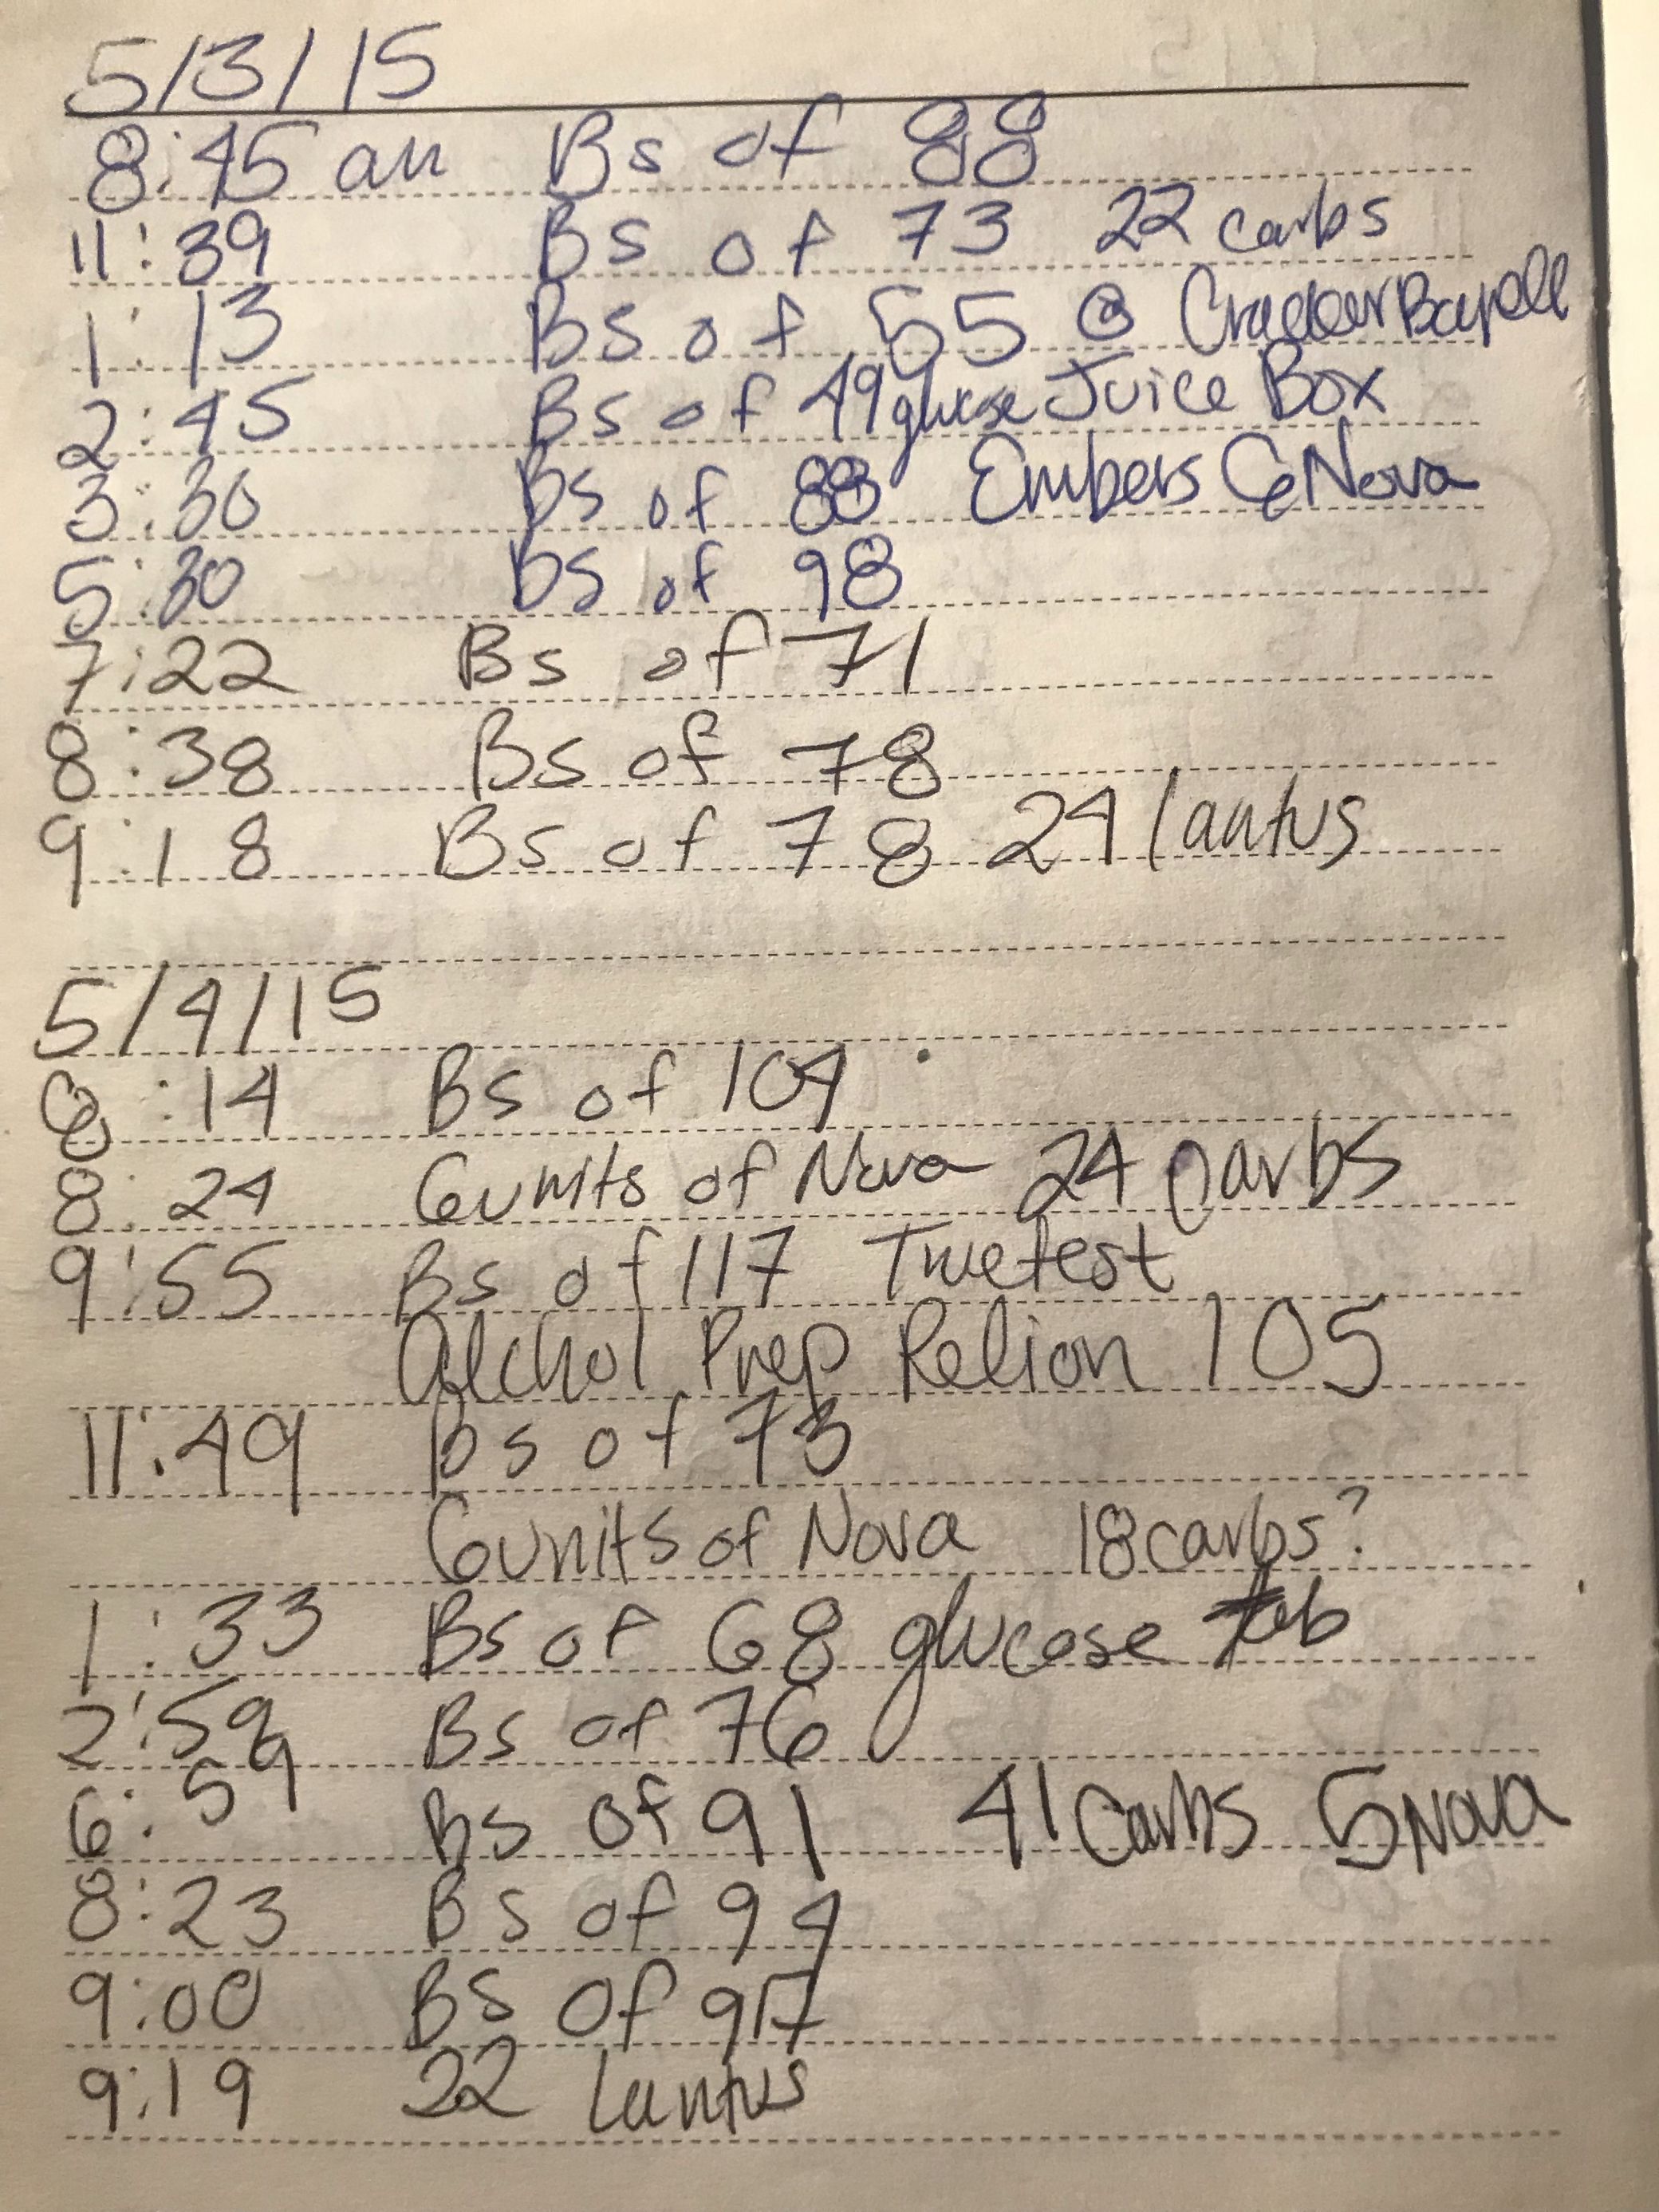 5/3/15
8:45 am Bs of 88
11:39 Bs of 73 22 carbs
1:13 Bs of 55 @ Cracker Barell
2:45 Bs of 49 glucose Juice Box
3:30 Bs of 88 Embers 6 Nova
5:30 Bs of 98
7:22 Bs of 71
8:38 Bs of 78
9:18 Bs of 78 24 lantus
5/4/15
8:14 Bs of 104
8:24 6 units of Nova 24 Carbs
9:55 Bs of 117 Truetest
Alchol Prep Relion 105
11:49 Bs of 73
6 units of Nova 18 carbs?
1:33 Bs of 68 glucose tab
2:59 Bs of 76
6:59 Bs of 91 41 Carbs 5 Nova
8:23 Bs of 94
9:00 BS of 97
9:19 22 Lantus